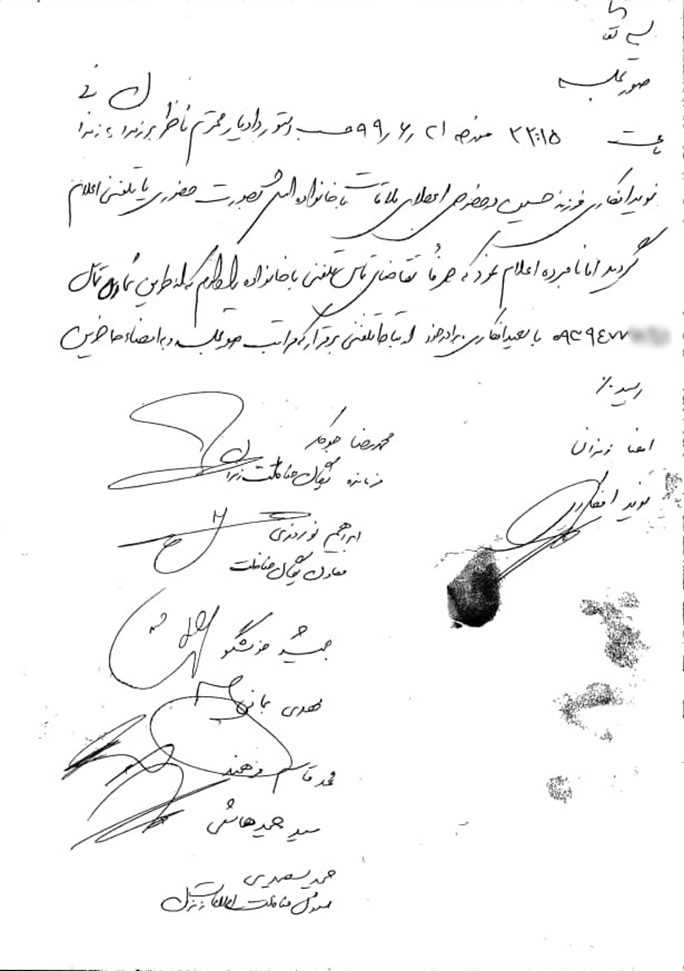 بسمه تعالی
صورتجلسه
ساعت ۲۲:۱۵ مورخه ۹۹٫۶٫۲۱ حسب دستور دادیار محترم ناظر بر زندان به زندانی
نوید افکاری فرزند حسین در خصوص اعطای ملاقات با خانواده اش بصورت حضوری یا تلفنی اعلام
گردید اما نامبرده اعلام نمود که صرفاً تقاضای تماس تلفنی با خانواده را دارم که از طریق شماره تماس
۰۹۳۹۴۷۷ با سعید افکاری برادر خود ارتباط تلفنی برقرار که مراتب صورتجلسه و به امضاء حاضرین
رسید٪
محمدرضا جوکار
فرمانده یگان حفاظت زندان
امضا زندانی
نوید افکاری
ابراهیم نوروزی
معاون یگان حفاظت
جمشید خوشگو
مهدی
محمد قاسم
سید حمید هاشمی
حمید
مسئول حفاظت اطلاعات زندان